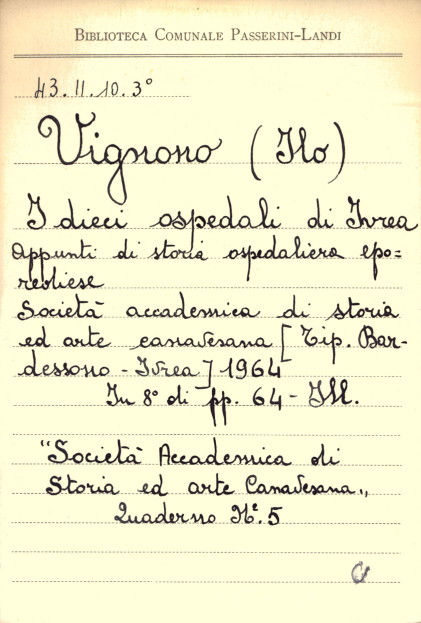 BIBLIOTECA COMUNALE PASSERINI-LANDI
43.II.10.3°
Vignono (Ilo)
I dieci ospedali di Ivrea
Appunti di storia ospedaliera epo=
rediese
Società accademica di storia
ed arte canavesana [Tip. Bar-
dessono - Ivrea] 1964
In 8° di pp. 64 - Ill.
"Società Accademica di
Storia ed arte Canavesana„
Quaderno N.º 5